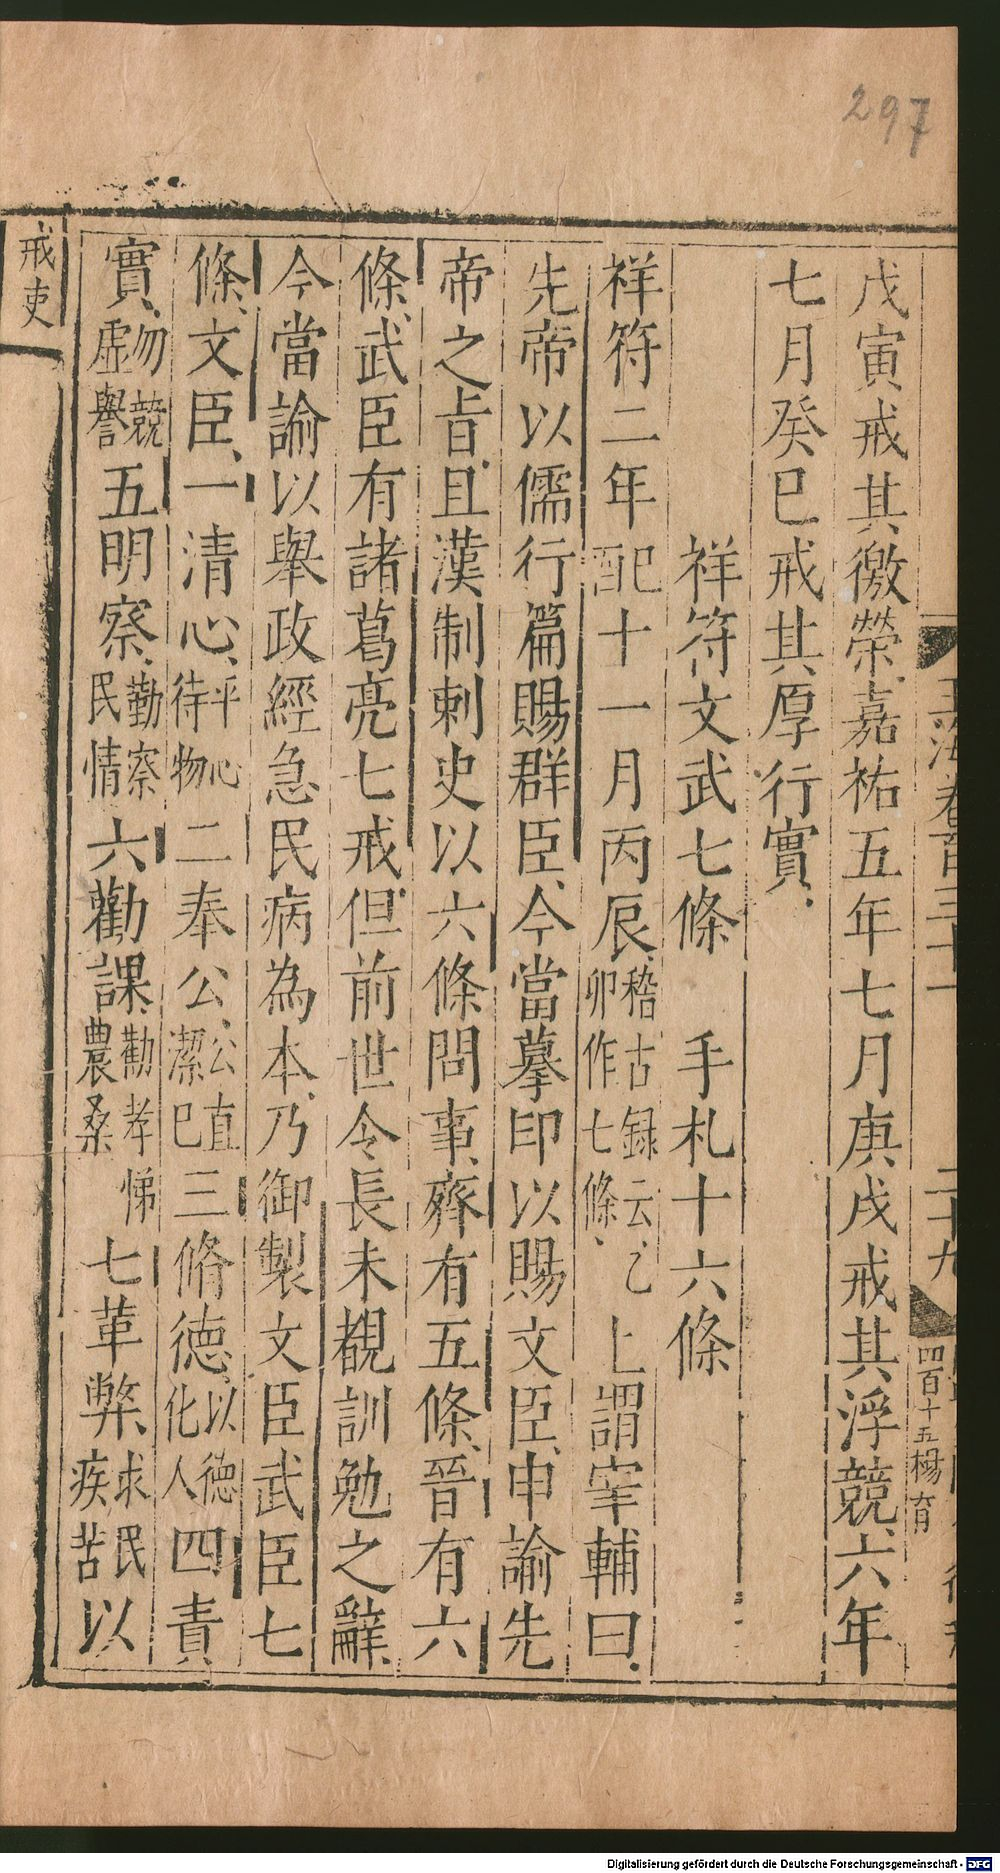 297
戊寅戒其徼榮嘉祐五年七月庚戌戒其浮競六年
七月癸巳戒其厚行實
祥符文武七條　手札十六條
祥符二年配十一月丙辰稽古録云乙卯作七條上謂宰輔曰
先帝以儒行篇賜群臣今當摹印以賜文臣申諭先
帝之㫖且漢制刺史以六條問事齊有五條晉有六
條武臣有諸葛亮七戒但前世令長未覩訓勉之辭
今當諭以舉政經急民病為本乃御製文臣武臣七
條文臣一清心平心待物二奉公公直潔巳三脩德以德化人四責
實勿競虛譽五明察勤察民情六勸課勸孝悌農桑七革弊求民疾苦以
戒吏
玉海卷百三十一
二十九
四百十五楊育
Digitalisierung gefördert durch die Deutsche Forschungsgemeinschaft - DFG